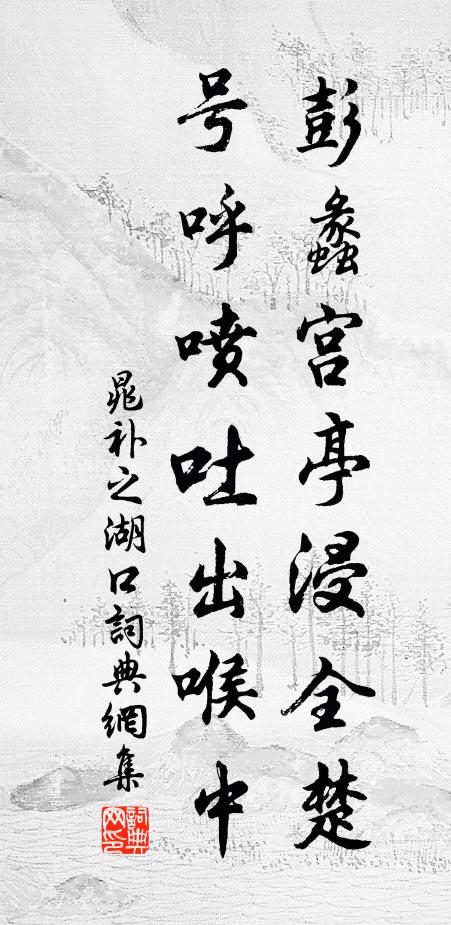 彭蠡宫亭浸全楚
号呼喷吐出喉中
晁补之湖口詞典網集
詞典网印